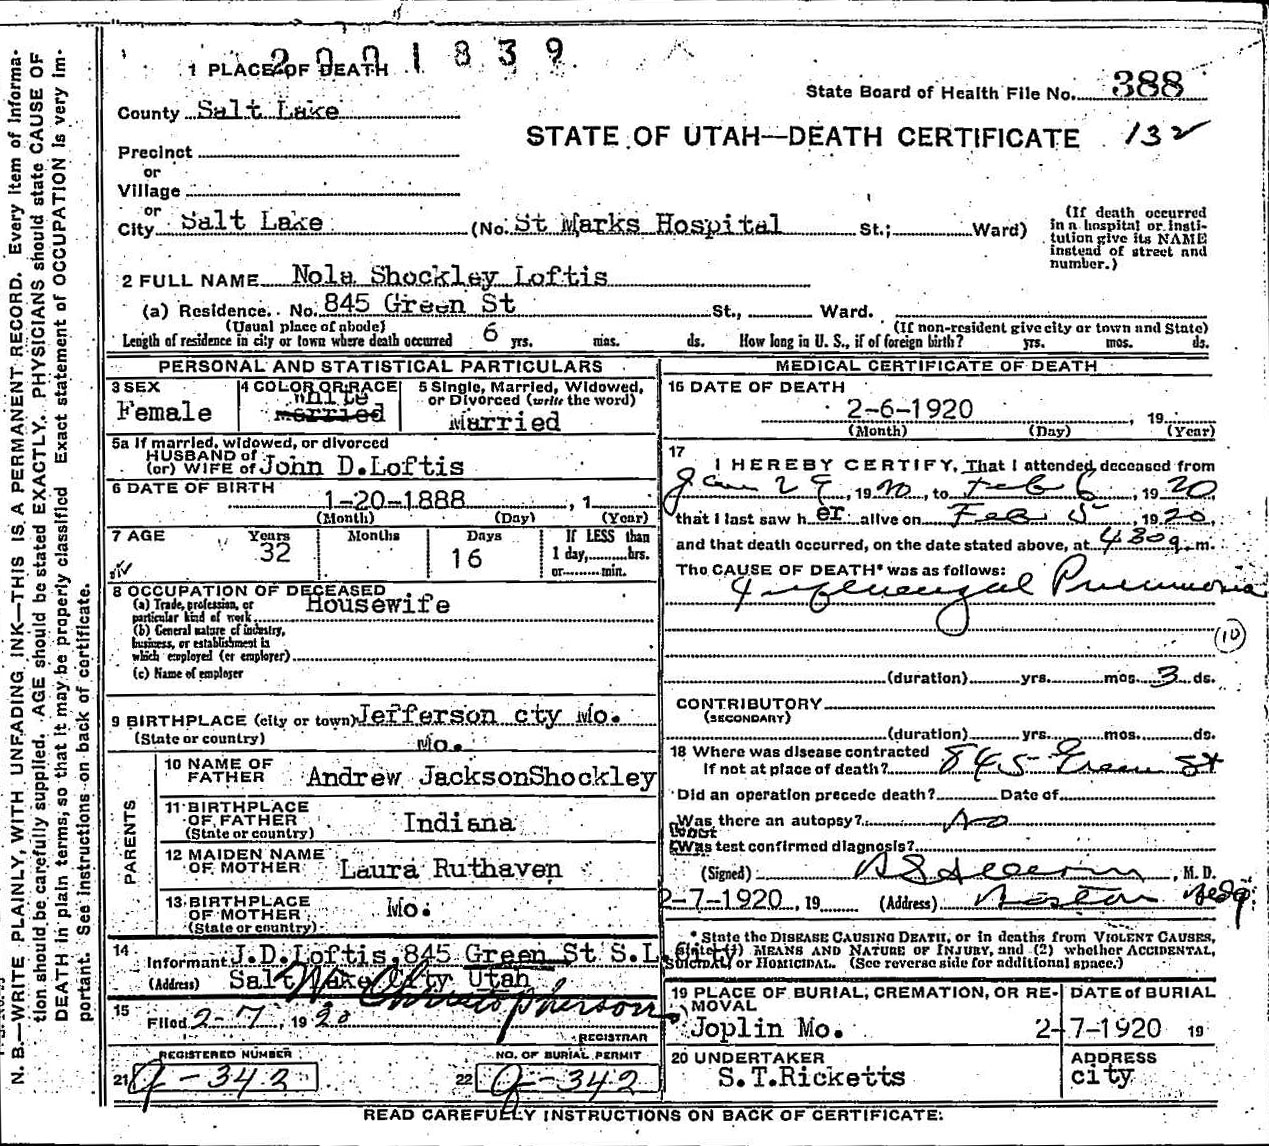 2001839
1 PLACE OF DEATH
State Board of Health File No. 388
County Salt Lake
STATE OF UTAH—DEATH CERTIFICATE 132
Precinct
or
Village
or
City Salt Lake (No. St Marks Hospital St.; Ward)
(If death occurred
in a hospital or insti-
tution give its NAME
instead of street and
number.)
2 FULL NAME Nola Shockley Loftis
(a) Residence. No. 845 Green St St., Ward.
(Usual place of abode) (If non-resident give city or town and State)
Length of residence in city or town where death occurred 6 yrs. mos. ds. How long in U. S., if of foreign birth? yrs. mos. ds.
PERSONAL AND STATISTICAL PARTICULARS
3 SEX
Female
4 COLOR OR RACE
White
married
5 Single, Married, Widowed,
or Divorced (write the word)
Married
5a If married, widowed, or divorced
HUSBAND of
(or) WIFE of John D. Loftis
6 DATE OF BIRTH
1-20-1888 , 1
(Month) (Day) (Year)
7 AGE Years Months Days If LESS than
32 16 1 day, hrs.
or min.
8 OCCUPATION OF DECEASED
(a) Trade, profession, or
particular kind of work Housewife
(b) General nature of industry,
business, or establishment in
which employed (or employer)
(c) Name of employer
9 BIRTHPLACE (city or town) Jefferson cty Mo.
(State or country) Mo.
PARENTS
10 NAME OF
FATHER Andrew JacksonShockley
11 BIRTHPLACE
OF FATHER Indiana
(State or country)
12 MAIDEN NAME
OF MOTHER Laura Ruthaven
13 BIRTHPLACE
OF MOTHER Mo.
(State or country)
14
Informant J.D.Loftis, 845 Green St S.L
(Address) Salt Lake City Utah
15
Filed 2-7, 1920 Christopherson
REGISTRAR
REGISTERED NUMBER NO. OF BURIAL PERMIT
21 J-342 22 J-342
MEDICAL CERTIFICATE OF DEATH
16 DATE OF DEATH
2-6-1920 , 19
(Month) (Day) (Year)
17
I HEREBY CERTIFY, That I attended deceased from
Jan 29, 1920, to Feb 6, 1920
that I last saw her alive on Feb 5, 1920,
and that death occurred, on the date stated above, at 4 30 a. m.
The CAUSE OF DEATH* was as follows:
Influenzal Pneumonia
(10)
(duration) yrs. mos. 3 ds.
CONTRIBUTORY
(SECONDARY)
(duration) yrs. mos. ds.
18 Where was disease contracted
If not at place of death? 845 Green St
Did an operation precede death? Date of
Was there an autopsy? No
Was test confirmed diagnosis?
(Signed) , M. D.
2-7-1920 , 19 (Address) Boston Bldg
* State the DISEASE CAUSING DEATH, or in deaths from VIOLENT CAUSES,
State (1) MEANS AND NATURE OF INJURY, and (2) whether ACCIDENTAL,
SUICIDAL, or HOMICIDAL. (See reverse side for additional space.)
19 PLACE OF BURIAL, CREMATION, OR RE-
MOVAL
Joplin Mo.
DATE of BURIAL
2-7-1920 19
20 UNDERTAKER
S.T.Ricketts
ADDRESS
city
READ CAREFULLY INSTRUCTIONS ON BACK OF CERTIFICATE.
N. B.—WRITE PLAINLY, WITH UNFADING INK—THIS IS A PERMANENT RECORD. Every item of informa-
tion should be carefully supplied. AGE should be stated EXACTLY. PHYSICIANS should state CAUSE OF
DEATH in plain terms, so that it may be properly classified. Exact statement of OCCUPATION is very im-
portant. See instructions on back of certificate.